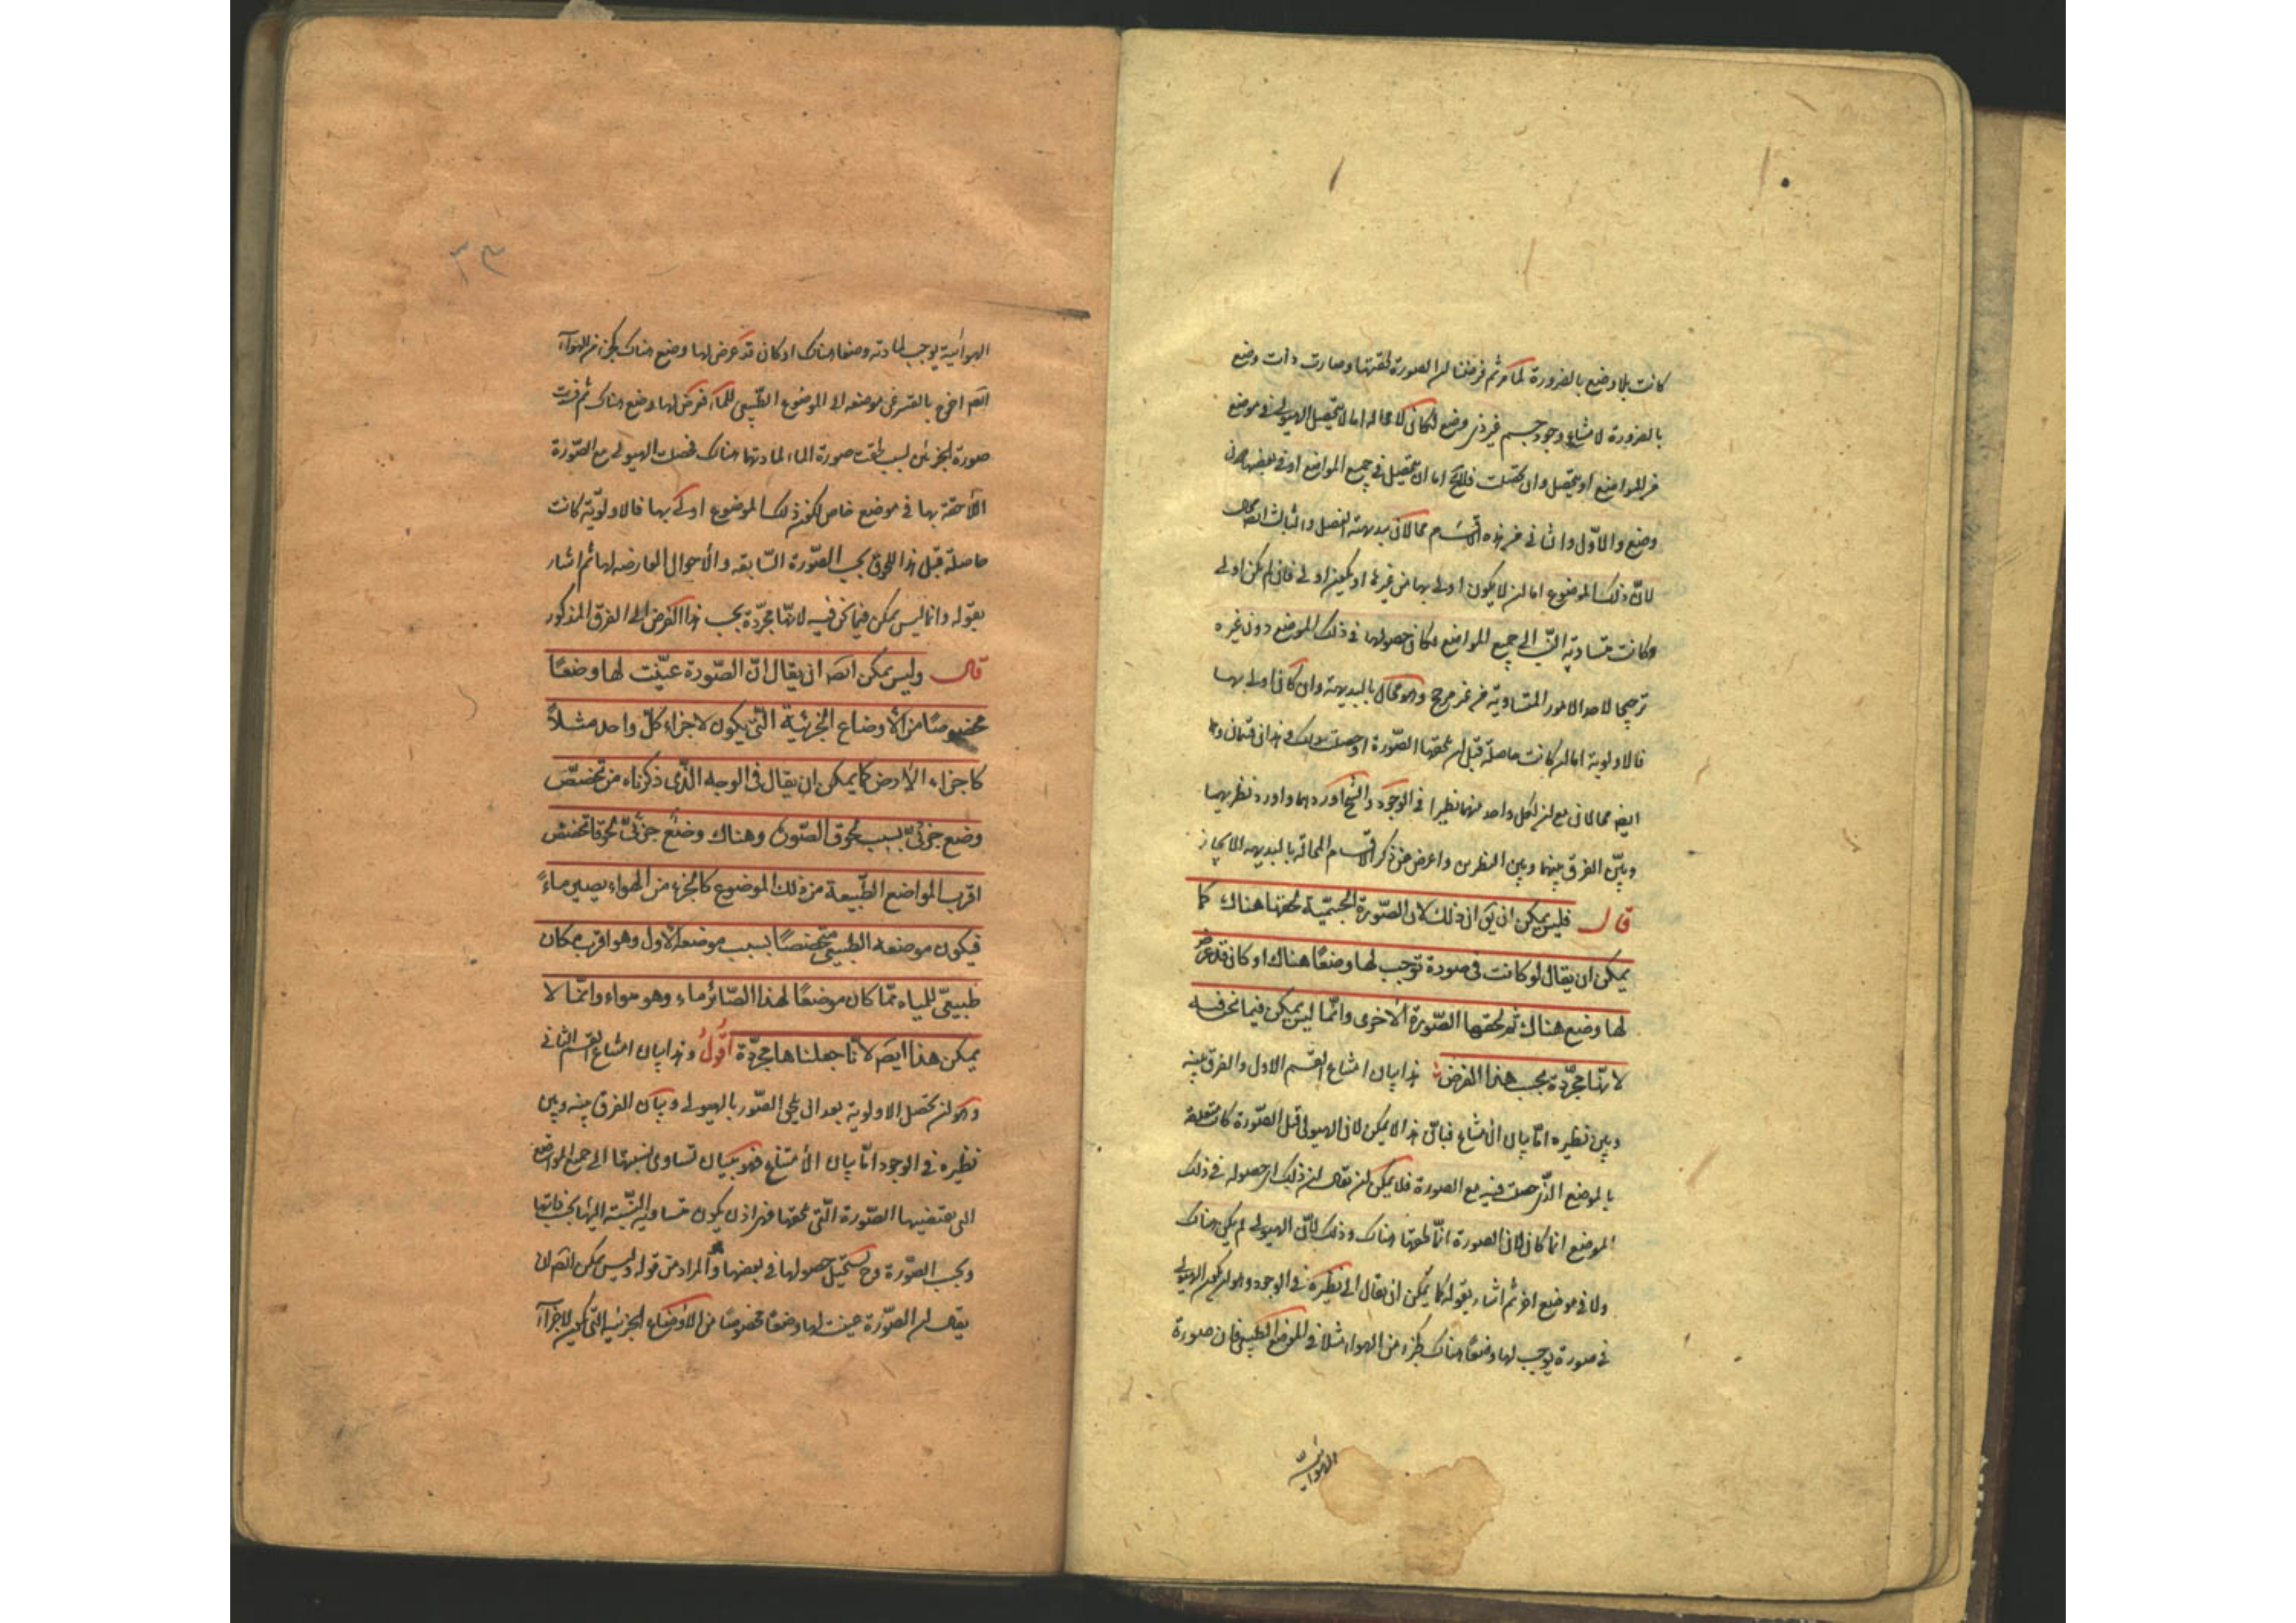 كانت بلا وضع بالضرورة لما مر ثم فرضنا ان الصورة لحقتها وصارت ذات وضع
بالضرورة لامتناع وجود جسم غير ذي وضع لكان لا محالة اما لا يتحصل الهيولى في موضع
من المواضع او يتحصل وان تحصلت فلا يخ اما ان يتحصل في جميع المواضع او في بعضها دون
وضع والاول والثاني من هذه الاقسام محالان ببديهة العقل والثالث ايضا محال
لان ذلك الموضوع اما ان لا يكون اولى بها من غيره او يكون اولى فان لم يكن اولى
وكانت متساوية النسبة الى جميع المواضع لكان حصولها في ذلك الموضع دون غيره
ترجيحا لاحد الامور المتساوية من غير مرجح وهو محال بالبديهة وان كان اولى بها
فالاولوية اما ان كانت حاصلة قبل ان تلحقها الصورة او حصلت بذلك وهذان قسمان وهما
ايضا محالان مع ان لكل واحد منهما نظيرا في الوجود والشيخ اوردهما واورد نظيريهما
وبين الفرق بينهما وبين النظيرين واعرض عن ذكر الاقسام المحالة بالبديهة للايجاز
قال فليس يمكن ان يق ان ذلك لان الصورة الجسمية لحقتها هناك كما
يمكن ان يقال لو كانت في صورة توجب لها وضعًا هناك او كان قد عرض
لها وضع هناك ثم لحقها الصورة الاخرى وانما ليس يمكن فيما نحن فيه
لانها مجردة بحسب هذا الفرض هذا بيان امتناع القسم الاول والفرق بينه
وبين نظيره اما بيان الامتناع فبان هذا لا يمكن لان الهيولى قبل الصورة كانت متعلقة
بالموضع الذي حصلت فيه مع الصورة فلا يمكن ان يقال ان ذلك اي حصوله في ذلك
الموضع انما كان لان الصورة انما لحقتها هناك وذلك لان الهيولى لم يكن هناك
ولا في موضع اخر ثم اشار بقوله كما يمكن ان يقال الى نظيره في الوجود وهو ان يكون الهيولى
في صورة يوجب لها وضعا هناك كجزء من الهواء مثلا في الموضع الطبيعي فان صورة
الهوائية
٣٣
الهوائية يوجب لمادته وضعا هناك او كان قد عرض لها وضع هناك كجزء من الهواء
ايضا اخرج بالقسر عن موضعه الى الموضوع الطبيعي للماء فعرض لها وضع هناك ثم فسدت
صورة الجزئين بسبب لحقت صورة الماء لمادتها هناك فحصلت الهيولى مع الصورة
اللاحقة بها في موضع خاص لكون ذلك الموضوع اولى بها فالاولوية كانت
حاصلة قبل هذا اللحوق بحسب الصورة السابقة والأحوال العارضة لها ثم اشار
بقوله وانما ليس يمكن فيما نحن فيه لانها مجردة بحسب هذا الفرض الى الفرق المذكور
قال وليس يمكن ايضا ان يقال ان الصورة عيّنت لها وضعًا
مخصوصًا من الأوضاع الجزئية التي يكون لاجزاء كل واحد مثلاً
كاجزاء الارض كما يمكن ان يقال في الوجه الذي ذكرناه من تخصص
وضع جزئي بسبب لحوق الصورة وهناك وضع جزئي لحوقا تخصص
اقرب المواضع الطبيعة من ذلك الموضوع كالجزء من الهواء يصير ماءً
فيكون موضعه الطبيعي متخصصًا بسبب موضعه الأول وهو اقرب مكان
طبيعي للمياه مما كان موضعًا لهذا الصائر ماء وهو هواء وانما لا
يمكن هذا ايضا لانا جعلناها مجردة اقول وهذا بيان امتناع القسم الثاني
وهو ان تحصل الاولوية بعد ان تلحق الصور بالهيولى وبيان الفرق بينه وبين
نظيره في الوجود اما بيان الأمتناع فهو ببيان تساوى نسبتها الى جميع المواضع
التي تقتضيها الصورة التي تلحقها فهي اذن يكون متساوية النسبة اليها بحسب ذاتها
وبحسب الصورة وح يستحيل حصولها في بعضها والمراد من قوله وليس يمكن ايضا ان
يقال ان الصورة عينت لها وضعًا مخصوصًا من الأوضاع الجزئية التي تكون لاجزاء